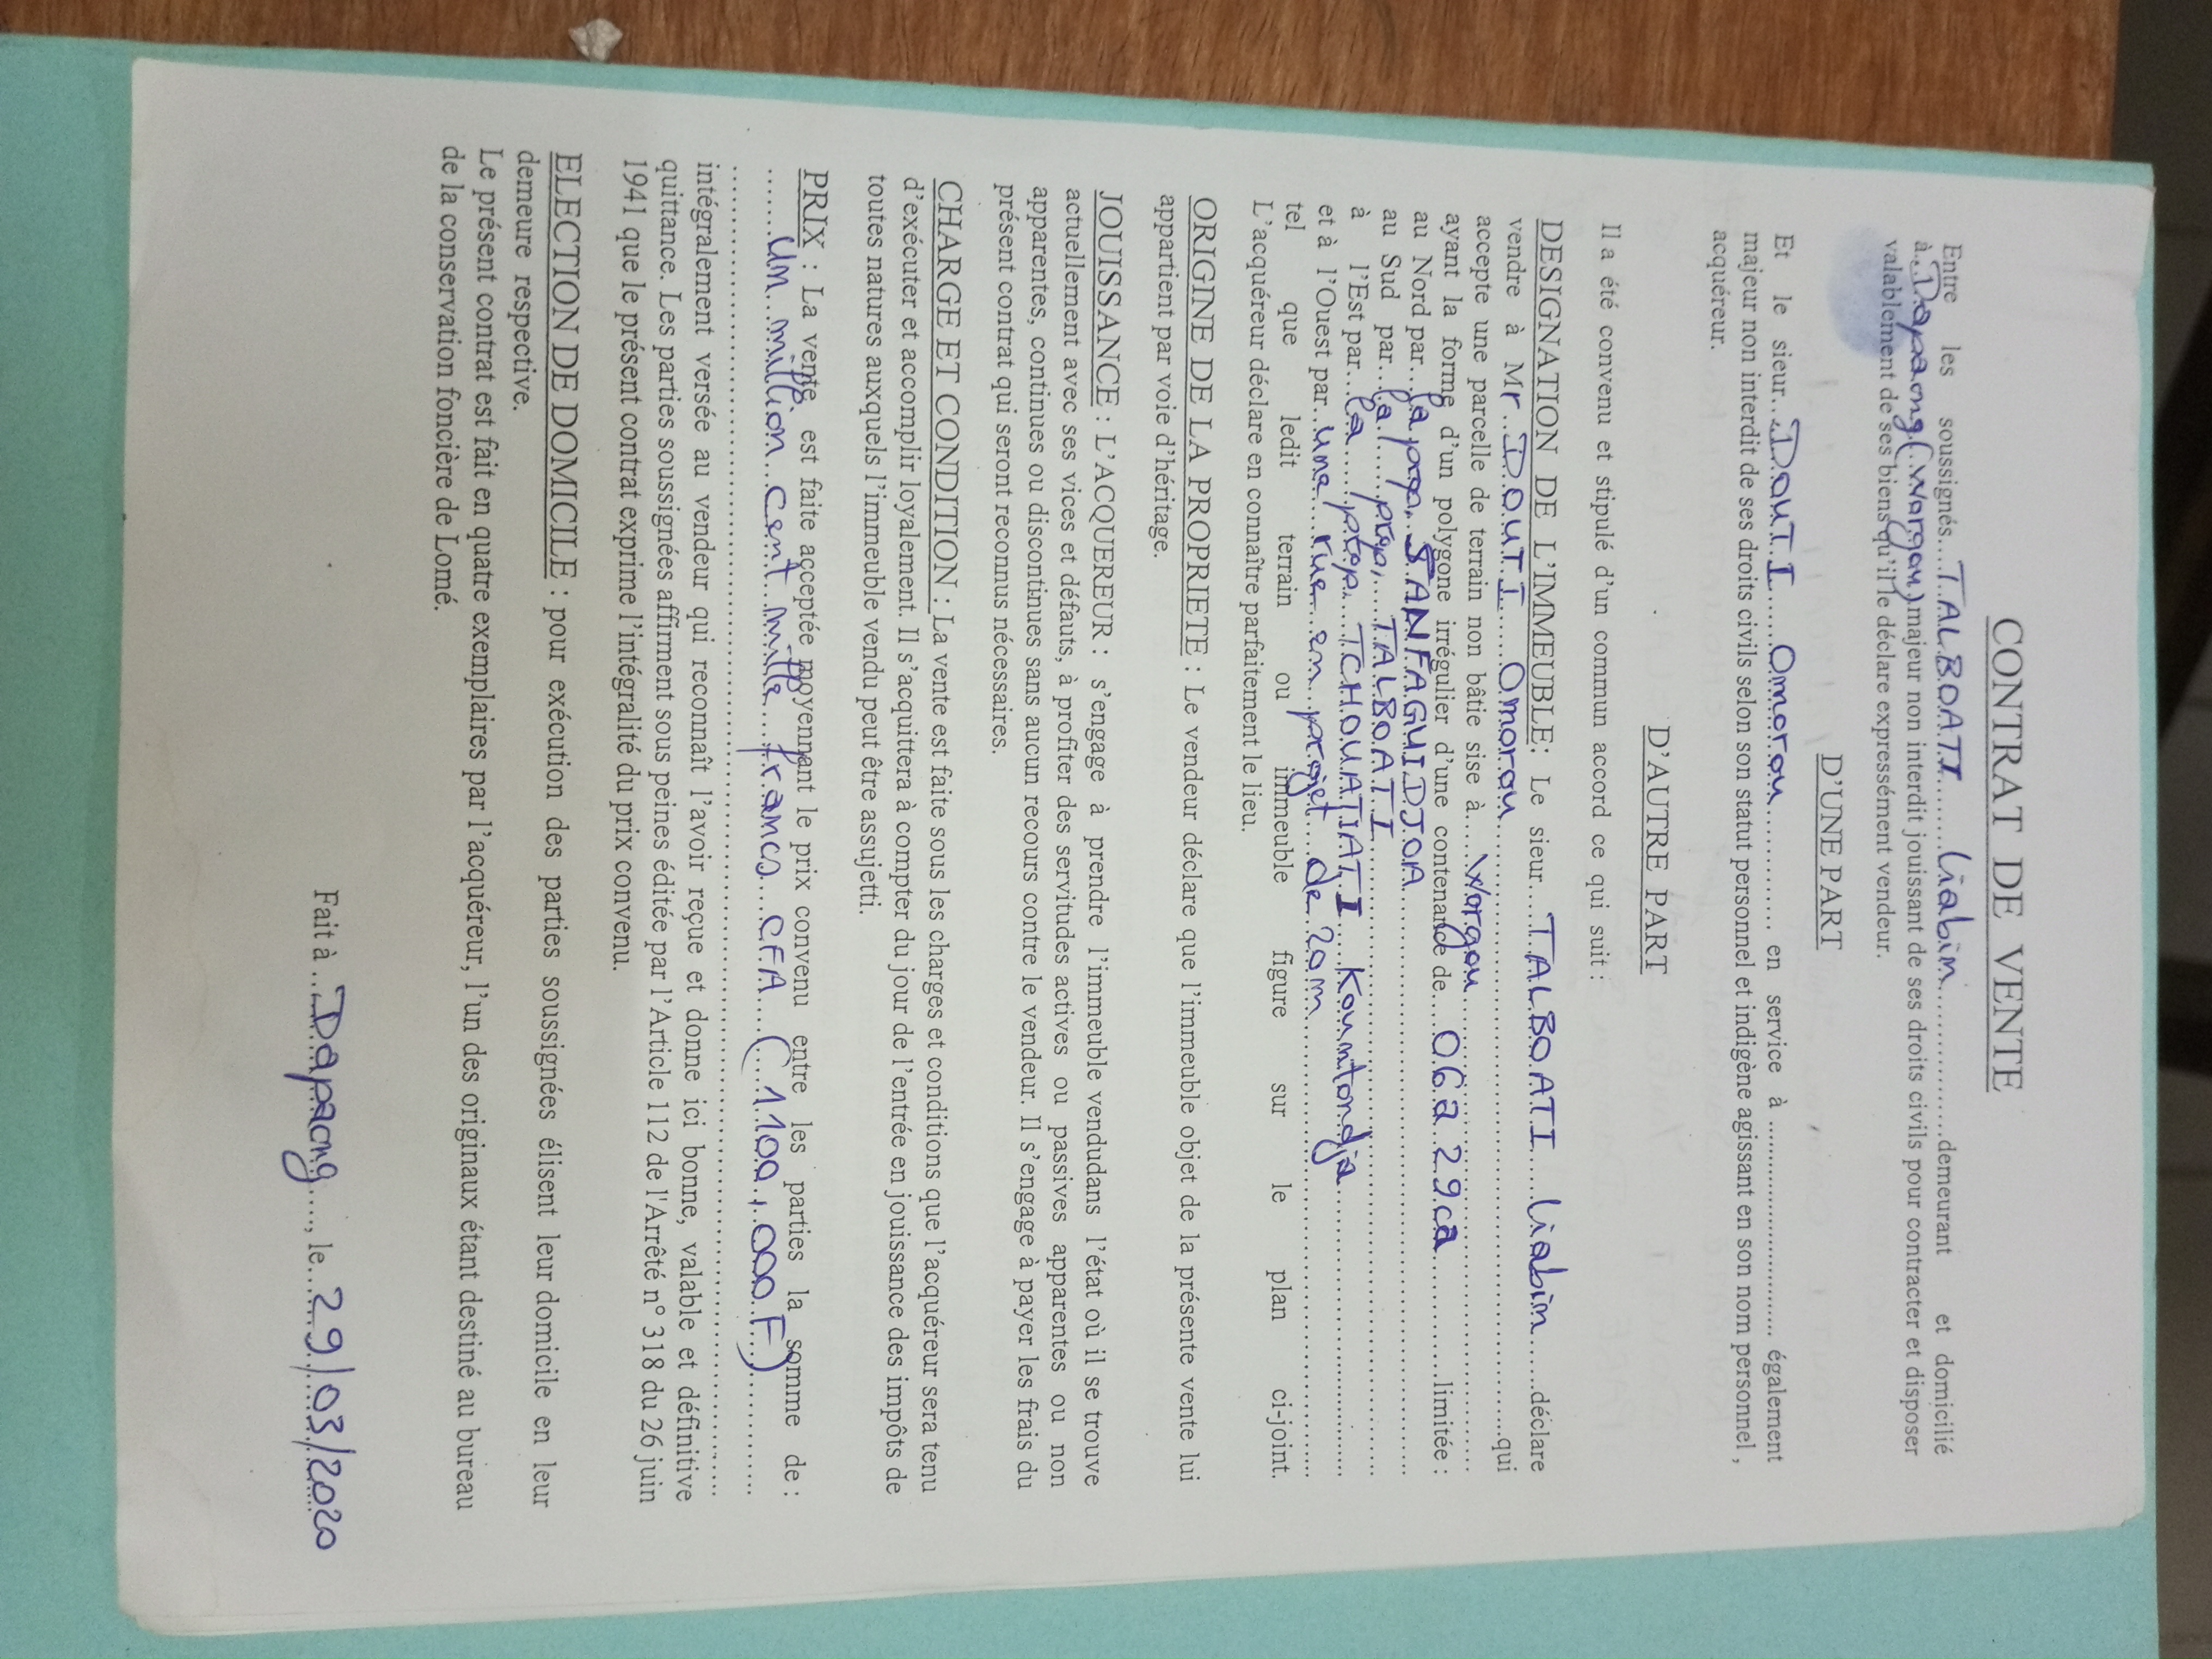 CONTRAT DE VENTE
Entre les soussignés....TALBOATI.......Liabin....................demeurant et domicilié
à..Dapaong(Worgou)majeur non interdit jouissant de ses droits civils pour contracter et disposer
valablement de ses biens qu'il le déclare expressément vendeur.
D'UNE PART
Et le sieur...DOUTI......Omorou............... en service à ................................ également
majeur non interdit de ses droits civils selon son statut personnel et indigène agissant en son nom personnel ,
acquéreur.
D'AUTRE PART
Il a été convenu et stipulé d'un commun accord ce qui suit :
DESIGNATION DE L'IMMEUBLE: Le sieur.....TALBOATI.....Liabin.......déclare
vendre à Mr...DOUTI......Omorou..............................................................qui
accepte une parcelle de terrain non bâtie sise à.....Worgou..............................
ayant la forme d'un polygone irrégulier d'une contenance de....06a 29ca.............limitée :
au Nord par...la prop. SANFAGUIDJOA..............................................
au Sud par...la...prop....TALBOATI..............................................
à l'Est par...la......prop...TCHOUATIATI....Kountondja..............................
et à l'Ouest par..une...rue...en...projet....de 20m..............................
tel que ledit terrain ou immeuble figure sur le plan ci-joint.
L'acquéreur déclare en connaître parfaitement le lieu.
ORIGINE DE LA PROPRIETE : Le vendeur déclare que l'immeuble objet de la présente vente lui
appartient par voie d'héritage.
JOUISSANCE : L'ACQUEREUR : s'engage à prendre l'immeuble vendudans l'état où il se trouve
actuellement avec ses vices et défauts, à profiter des servitudes actives ou passives apparentes ou non
apparentes, continues ou discontinues sans aucun recours contre le vendeur. Il s'engage à payer les frais du
présent contrat qui seront reconnus nécessaires.
CHARGE ET CONDITION : La vente est faite sous les charges et conditions que l'acquéreur sera tenu
d'exécuter et accomplir loyalement. Il s'acquittera à compter du jour de l'entrée en jouissance des impôts de
toutes natures auxquels l'immeuble vendu peut être assujetti.
PRIX : La vente est faite acceptée moyennant le prix convenu entre les parties la somme de :
.......Un...million...cent...mille....francs....CFA....(1.100.000F)............
................................................................................
intégralement versée au vendeur qui reconnaît l'avoir reçue et donne ici bonne, valable et définitive
quittance. Les parties soussignées affirment sous peines éditée par l'Article 112 de l'Arrêté n° 318 du 26 juin
1941 que le présent contrat exprime l'intégralité du prix convenu.
ELECTION DE DOMICILE : pour exécution des parties soussignées élisent leur domicile en leur
demeure respective.
Le présent contrat est fait en quatre exemplaires par l'acquéreur, l'un des originaux étant destiné au bureau
de la conservation foncière de Lomé.
Fait à ..Dapaong...., le...29/03/2020